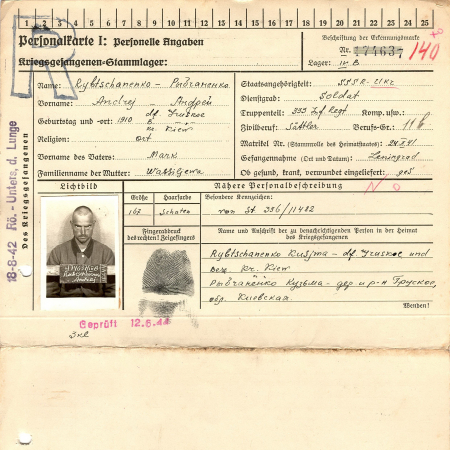 1 2 3 4 5 6 7 8 9 10 11 12 13 14 15 16 17 18 19 20 21 22 23 24 25
Personalkarte I: Personelle Angaben
Kriegsgefangenen-Stammlager:
Beschriftung der Erkennungsmarke
Nr. 174637 140
Lager: IV B
Name: Rybtschanenko – Рыбчаненко
Vorname: Andrej – Андрей
Geburtstag und -ort: 1910 df. Gruskoe
kr. Kiew
Religion: ort
Vorname des Vaters: Mark
Familienname der Mutter: Wassiljewa
Staatsangehörigkeit: SSSR – Ukr
Dienstgrad: Soldat
Truppenteil: 333 Inf Regt Komp. usw.:
Zivilberuf: Sattler Berufs-Gr.: 11 b
Matrikel Nr. (Stammrolle des Heimatstaates): 24.X.41
Gefangennahme (Ort und Datum): Leningrad
Ob gesund, krank, verwundet eingeliefert: ges
NO
Lichtbild
Nähere Personalbeschreibung
Größe Haarfarbe Besondere Kennzeichen:
162 Schaten von St. 336/11482
Fingerabdruck
des rechten! Zeigefingers
Name und Anschrift der zu benachrichtigenden Person in der Heimat
des Kriegsgefangenen
Rybtschanenko Kusjma – df. Gruskoe und
kr. Kiew
Рыбчаненко Кузьма – дер и р-н Груское,
обл. Киевская.
Wenden!
Geprüft 12.5.44
18-8-42 Rö.-Unters. d. Lunge
Des Kriegsgefangenen